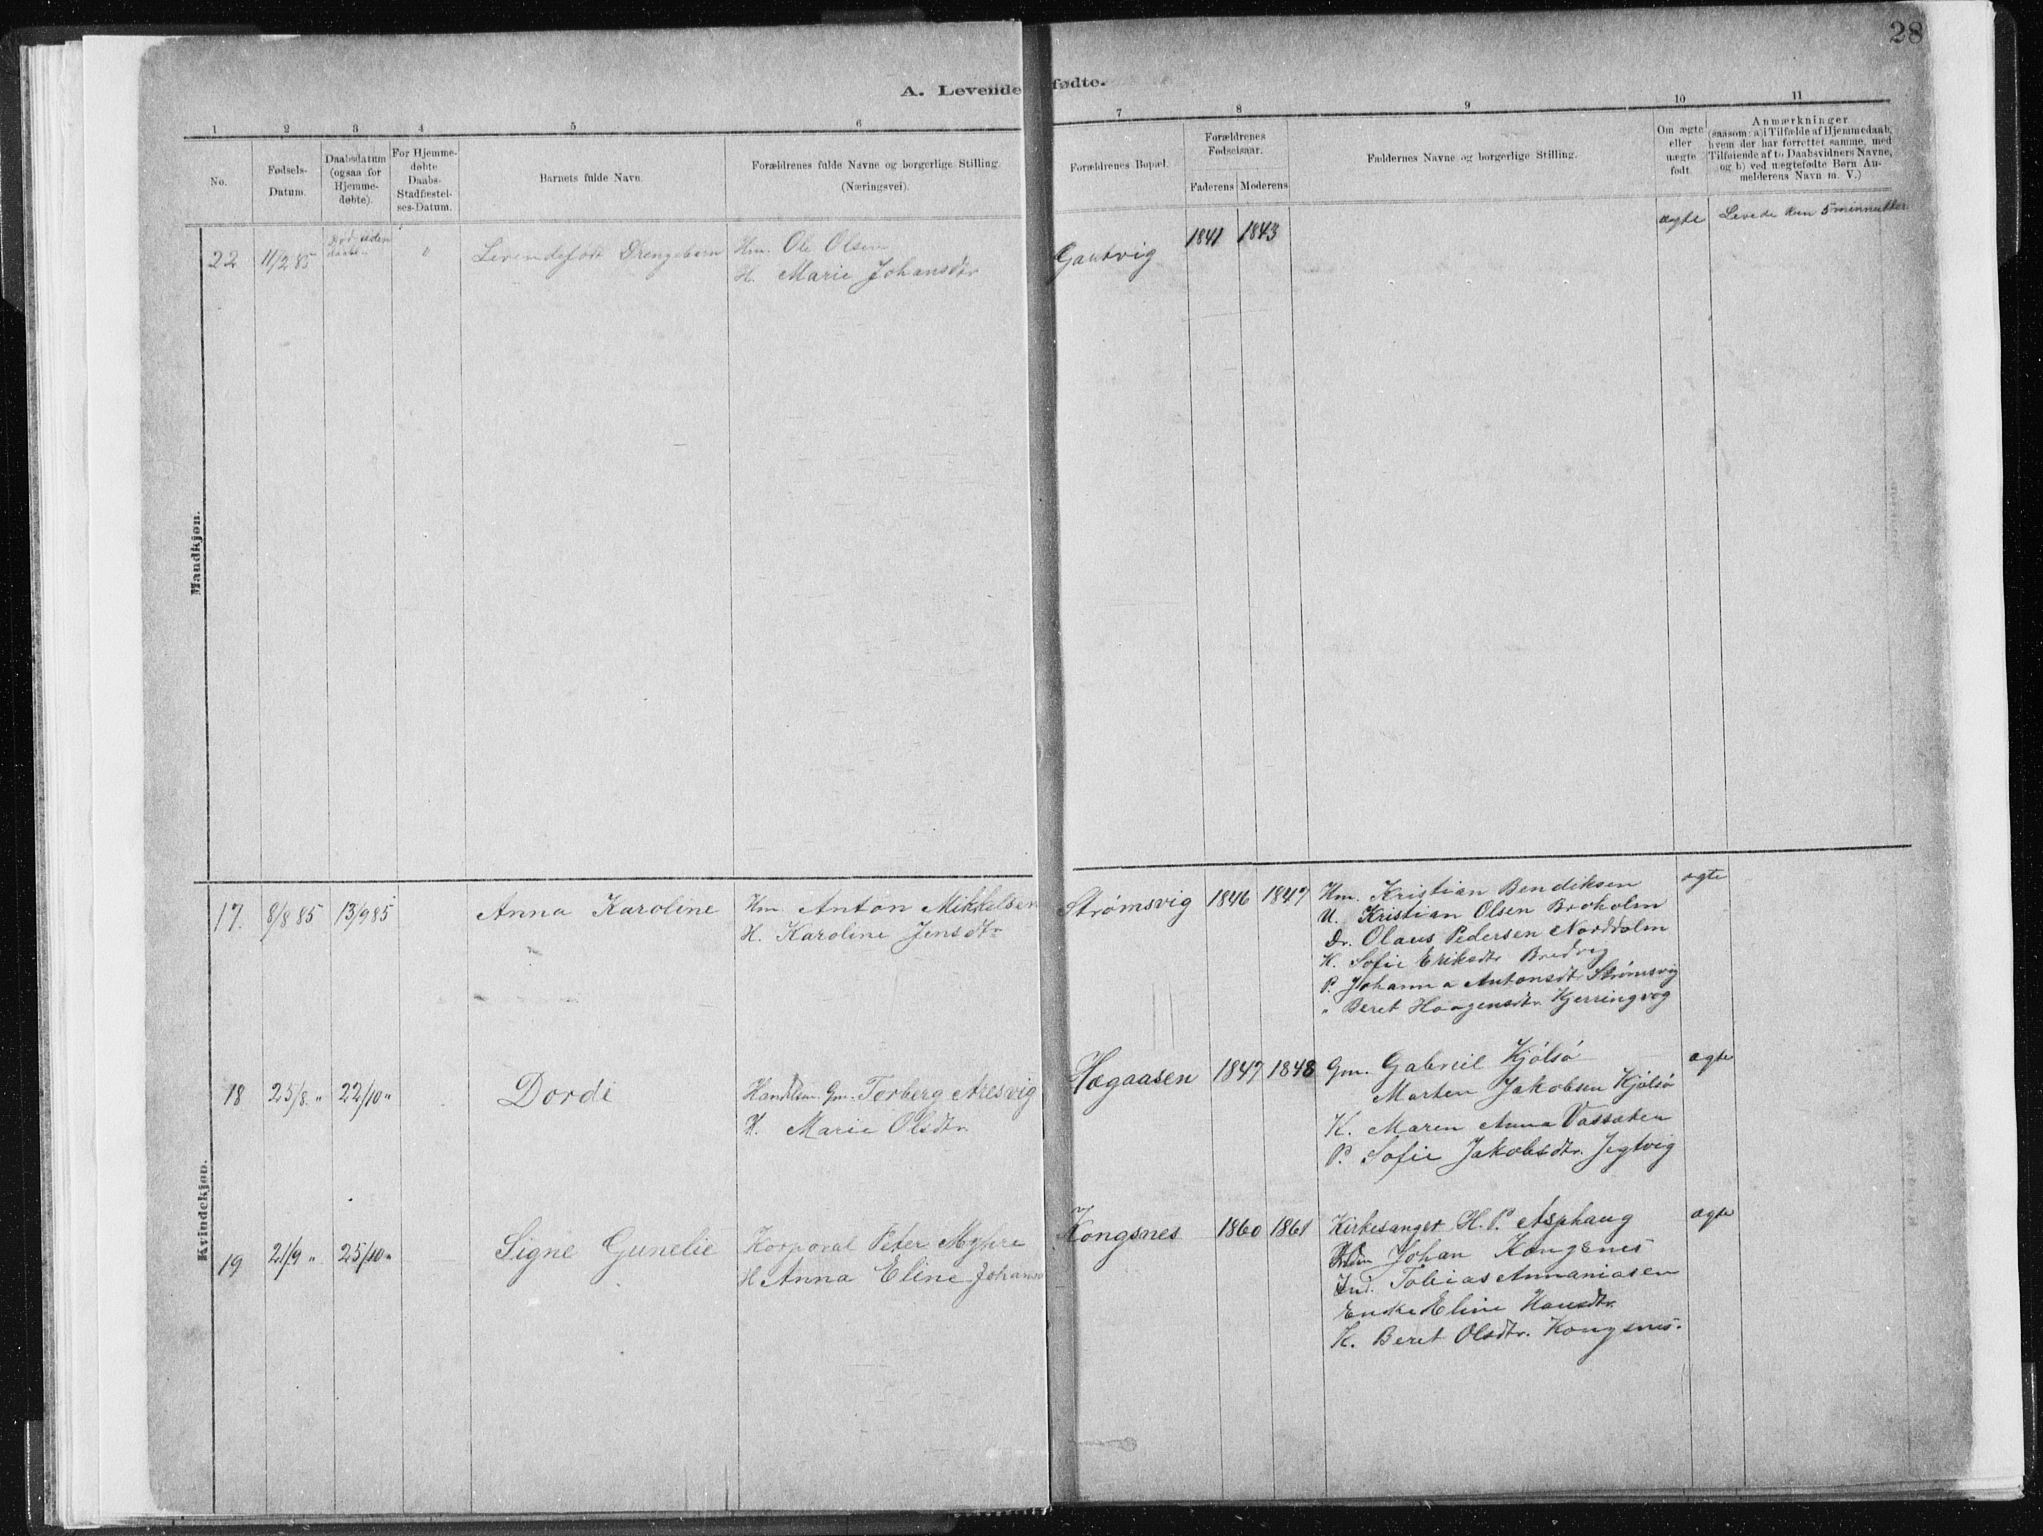 28
A. Levende fødte.
1 2 3 4 5 6 7 8 9 10 11
No.
Fødsels-
Datum.
Daabsdatum
(ogsaa for
Hjemme-
døbte).
For Hjemme-
døbte
Daabs-
Stadfæstel-
ses-Datum.
Barnets fulde Navn.
Forældrenes fulde Navne og borgerlige Stilling.
(Næringsvei).
Forældrenes Bopæl.
Forældrenes
Fødselsaar.
Faderens Moderens
Faddernes Navne og borgerlige Stilling.
Om ægte
eller
uægte
født.
Anmærkninger
(saasom: a) i Tilfælde af Hjemmedaab,
hvem der har forrettet samme, med
Tilføiende af to Daabsvidners Navne,
og b) ved uægtefødte Børn An-
melderens Navn m. V.)
Mandkjøn.
22 11/2 85
Død uden
daab
"
Levendefødt Drengebarn
Hm. Ole Olsen
H. Marie Johansdtr
Gautvig
1841 1843
ægte
Levede kun 5 minutter
Kvindekjøn.
17. 8/8 85 13/9 85
Anna Karoline
Hm. Anton Mikkelsen
H. Karoline Jensdtr
Strømsvig
1846 1847
Hm. Kristian Bendiksen
U. Kristian Olsen Broholm
Dr. Olaus Pedersen Norddalm
K. Sofie Eriksdtr Bredvig
P. Johanna Antonsdtr Strømsvig
" Beret Haagensdtr. Kjerringvog
ægte
18 25/8 " 22/10 "
Dordi
Handelsm. Gm. Torberg Aresvig
H. Marie Olsdtr.
Hægaasen
1847 1848
Gm. Gabriel Kjølsø
Morten Jakobsen Kjølsø
K. Maren Anna Vassæten
P. Sofie Jakobsdtr. Jegtvig
ægte
19 21/9 " 25/10 "
Signe Gunelie
Korporal Peter Myhre
H. Anna Eline Johans
Kongsnes
1860 1861
Kirkesanger H. P. Asphaug
Johan Kongsnes
Ind. Tobias Annaniasen
Enke Eline Hansdtr.
K. Beret Olsdtr. Kongsnes.
ægte